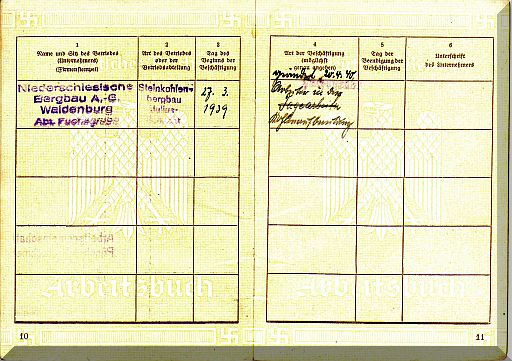 1
Name und Sitz des Betriebes
(Unternehmers)
(Firmenstempel)
2
Art des Betriebes
oder der
Betriebsabteilung
3
Tag des
Beginns der
Beschäftigung
4
Art der Beschäftigung
(möglichst
genau angeben)
5
Tag der
Beendigung der
Beschäftigung
6
Unterschrift
des Unternehmers
Niederschlesische
Bergbau A.-G.
Waldenburg
Abt. Fuchsgrube
Steinkohlen-
bergbau
27. 3.
1939
20.4.40
Arbeiter in der
Arbeitsbuch
Arbeitsbuch
10
11